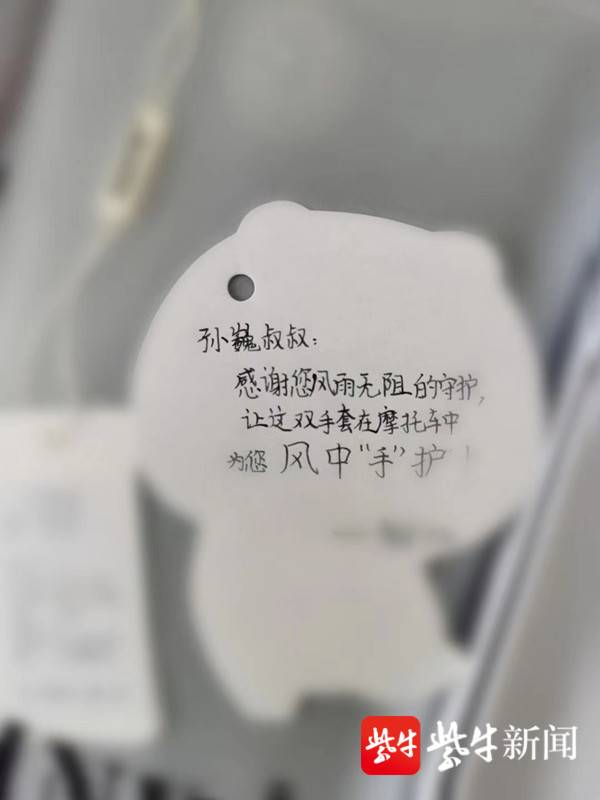 孙巍叔叔：
感谢您风雨无阻的守护，
让这双手套在摩托车中
为您 风中“手”护！
紫牛 紫牛新闻